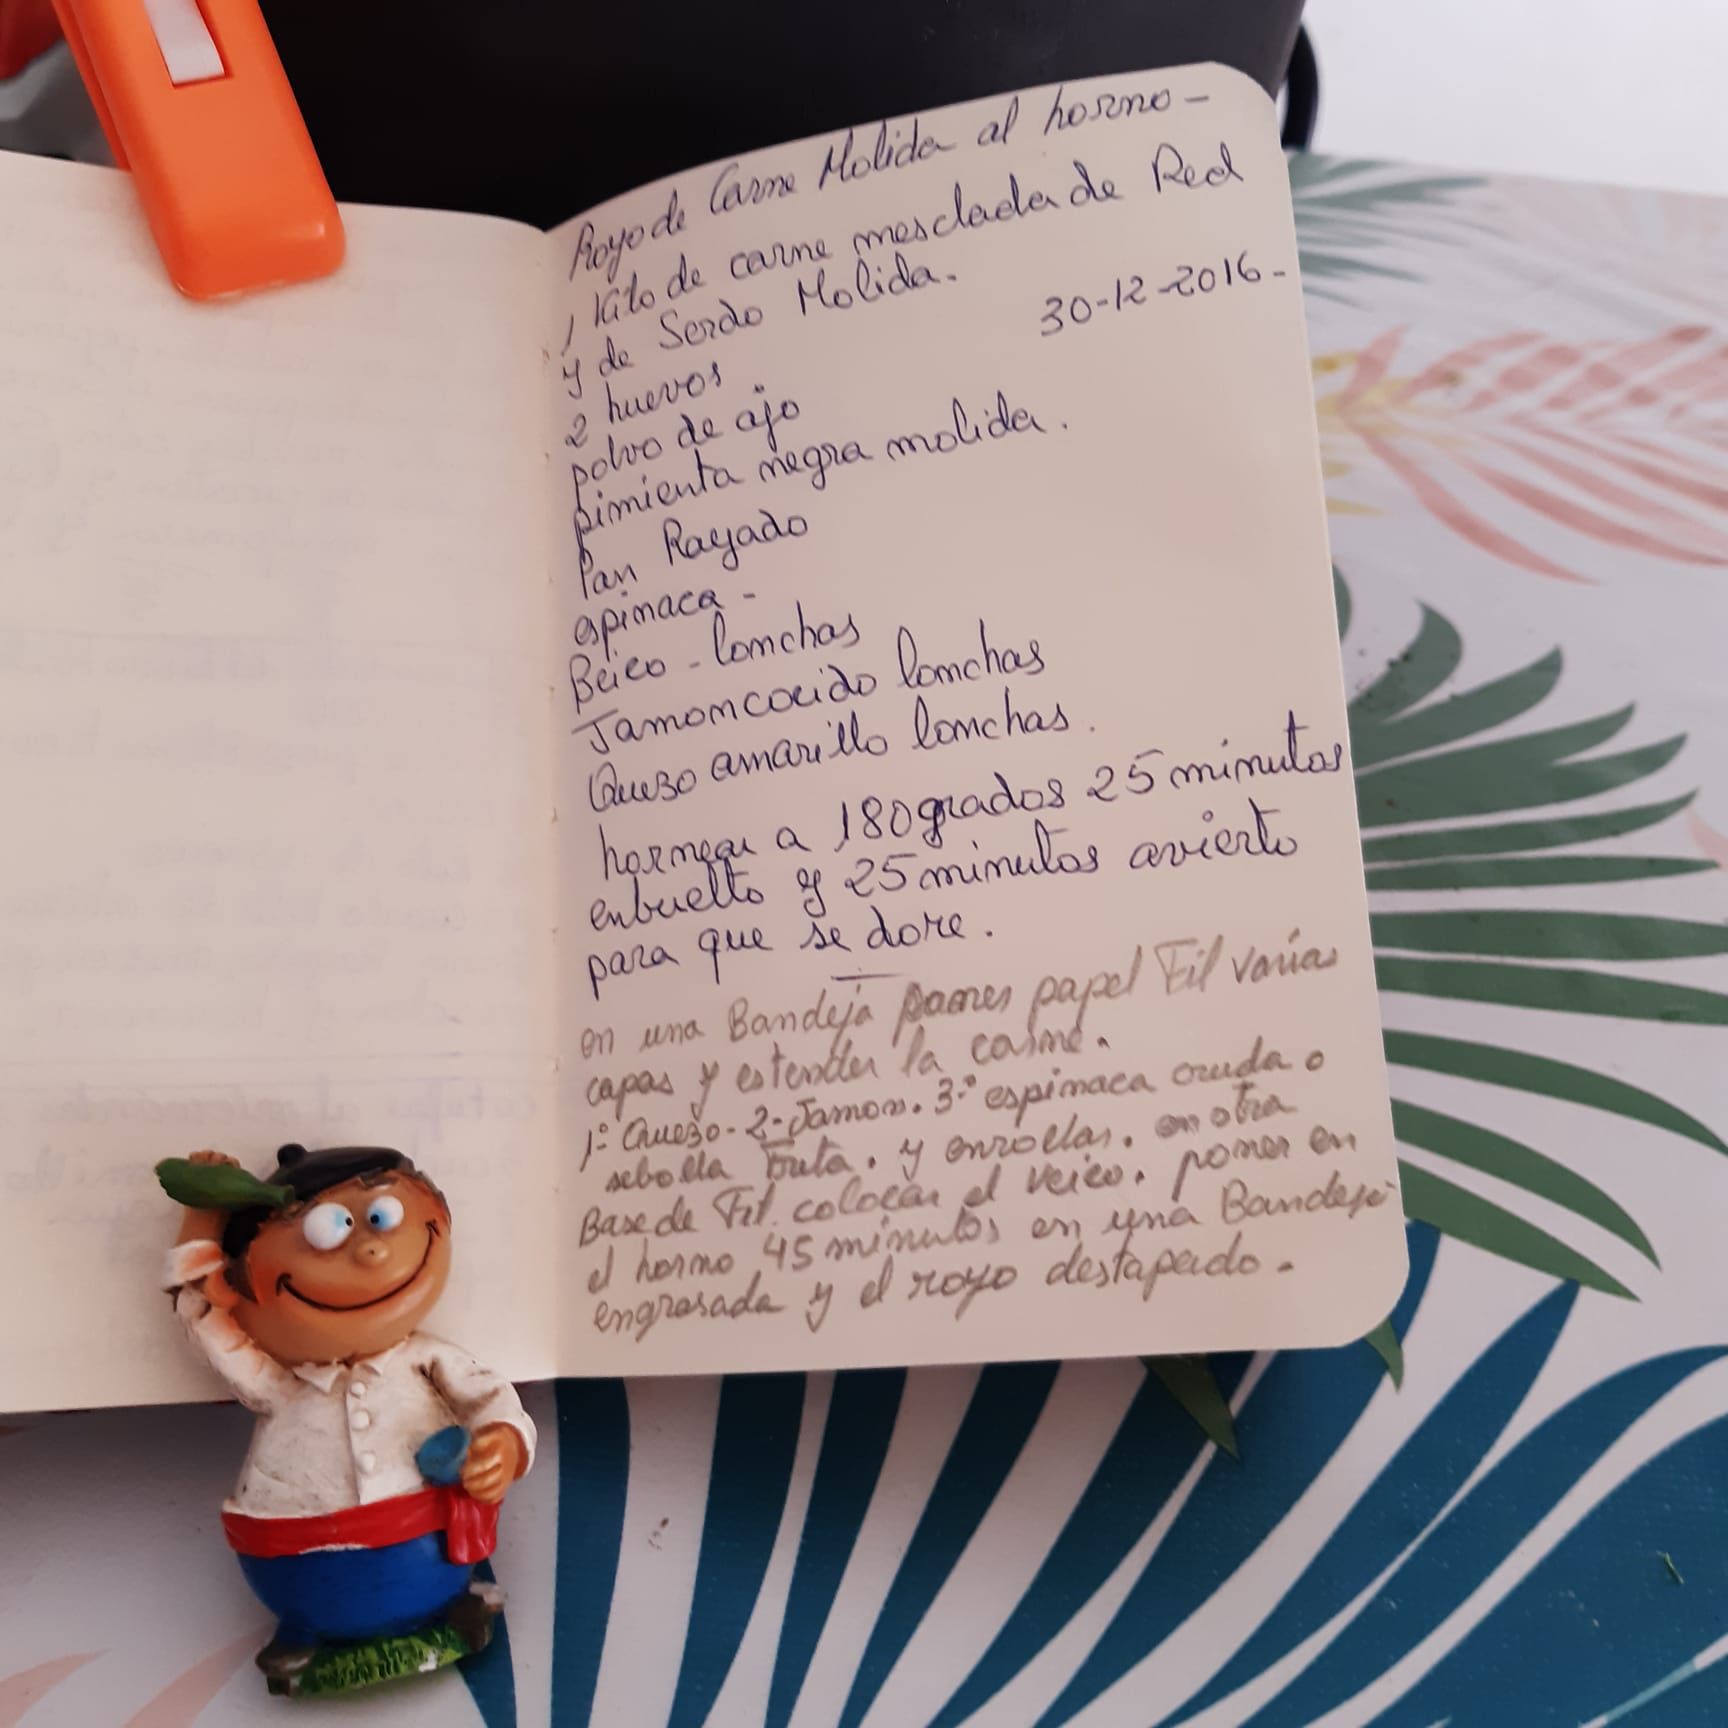 Royo de Carne Molida al horno -
1 kilo de carne mesclada de Red
y de Serdo Molida.
30-12-2016-
2 huevos
polvo de ajo
pimienta negra molida.
Pan Rayado
espinaca -
Beico - lonchas
Jamon cocido lonchas
Queso amarillo lonchas.
hornear a 180 grados 25 minutos
enbuelto y 25 minutos avierto
para que se dore.
en una Bandeja poner papel Fil varias
capas y estender la carne.
1º Queso - 2- Jamon. 3º espinaca cruda o
sebolla frita. y enrollar. en otra
Base de Fil. colocar el veico. poner en
el horno 45 minutos en una Bandeja
engrasada y el royo destapado.